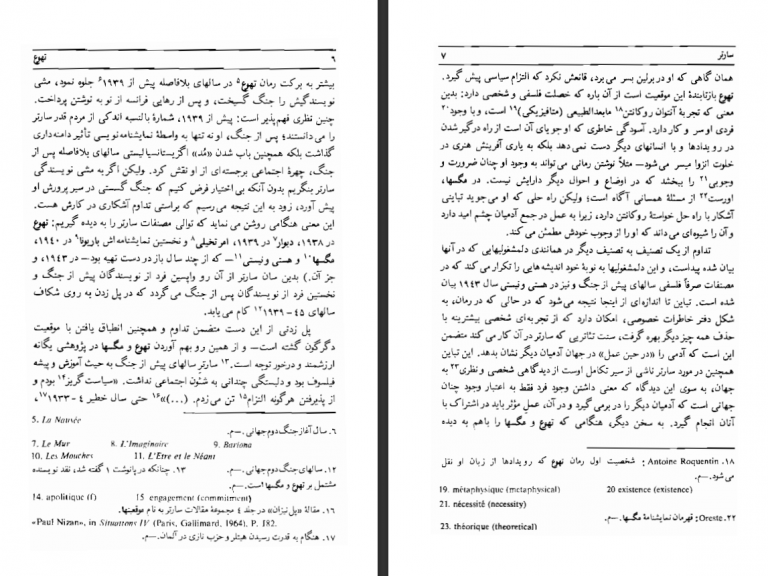 تهوع ۶
بیشتر به برکت رمان تهوع⁵ در سالهای بلافاصله پیش از ۱۹۳۹⁶ جلوه نمود، مشی
نویسندگیش را جنگ گسیخت، و پس از رهایی فرانسه از نو به نوشتن پرداخت.
چنین نظری فهم‌پذیر است: پیش از ۱۹۳۹، شمارهٔ بالنسبه اندکی از مردم قدر سارتر
را می‌دانستند؛ پس از جنگ، او نه تنها به واسطهٔ نمایشنامه‌نویسی تأثیر دامنه‌داری
گذاشت بلکه همچنین باب شدن «مُد» اگزیستانسیالیستی سالهای بلافاصله پس از
جنگ، چهرهٔ اجتماعی برجسته‌ای از او نقش کرد. ولیکن اگر به مشی نویسندگی
سارتر بنگریم بدون آنکه بی‌اختیار فرض کنیم که جنگ گسستی در سیر پرورش او
پیش آورد، زود به این نتیجه می‌رسیم که براستی تداوم آشکاری در کارش هست.
این معنی هنگامی روشن می‌نماید که توالی مصنفات سارتر را به دیده گیریم: تهوع
در ۱۹۳۸، دیوار⁷ در ۱۹۳۹، امر تخیلی⁸ و نخستین نمایشنامه‌اش باریونا⁹ در ۱۹۴۰،
مگسها¹⁰ و هستی و نیستی¹¹ — که از چند سال باز در دست تهیه بود — در ۱۹۴۳، و
جز آن.) بدین سان سارتر از آن رو واپسین فرد از نویسندگان پیش از جنگ و
نخستین فرد از نویسندگان پس از جنگ می‌گردد که در پل زدن به روی شکاف
سالهای ۴۵-۱۹۳۹¹² کام می‌یابد.
پل زدنی از این دست متضمن تداوم و همچنین انطباق یافتن با موقعیت
دگرگون گشته است— و از همین رو بهم آوردن تهوع و مگسها در پژوهشی یگانه
ارزشمند و درخور توجه است.¹³ سارتر سالهای پیش از جنگ به حیث آموزش و پیشه
فیلسوف بود و دلبستگی چندانی به شئون اجتماعی نداشت. «سیاست‌گریز¹⁴ بودم و
از پذیرفتن هرگونه التزام¹⁵ تن می‌زدم. (...)»¹⁶ حتی سال خطیر ۴-۱۹۳۳¹⁷،
5. La Nausée
۶. سال آغاز جنگ دوم جهانی.ـــم.
7. Le Mur 8. L'Imaginaire 9. Bariona
10. Les Mouches 11. L'Etre et le Néant
۱۲. سالهای جنگ دوم جهانی.ـــم. ۱۳. چنانکه در پانوشت ۱ گفته شد، نقد نویسنده
مشتمل بر تهوع و مگسها است.ـــم.
14. apolitique (f) 15. engagement (commitment)
۱۶. مقالهٔ «پل نیزان» در جلد ۴ مجموعهٔ مقالات سارتر به نام موقعیتها.
«Paul Nizan», in Situations IV (Paris, Gallimard, 1964), P. 182.
۱۷. هنگام به قدرت رسیدن هیتلر و حزب نازی در آلمان.ـــم.
سارتر ۷
همان گاهی که او در برلین بسر می‌برد، قانعش نکرد که التزام سیاسی پیش گیرد.
تهوع بازتابندهٔ این موقعیت است از آن باره که خصلت فلسفی و شخصی دارد: بدین
معنی که تجربهٔ آنتوان روکانتن¹⁸ مابعدالطبیعی (متافیزیکی)¹⁹ است، و با وجود²⁰
فردی او سر و کار دارد. آسودگی خاطری که او جویای آن است از راه درگیر شدن
در رویدادها و با انسانهای دیگر دست نمی‌دهد بلکه به یاری آفرینش هنری در
خلوت انزوا میسر می‌شود— مثلاً نوشتن رمانی می‌تواند به وجود او چنان ضرورت و
وجوبی²¹ را ببخشد که در اوضاع و احوال دیگر دارایش نیست. در مگسها،
اورست²² از مسئلهٔ همسانی آگاه است؛ ولیکن راه حلی که او می‌جوید تباینی
آشکار با راه حل خواستهٔ روکانتن دارد، زیرا به عمل در جمع آدمیان چشم امید دارد
و آن را شیوه‌ای می‌داند که او را از وجوب خودش مطمئن می‌کند.
تداوم از یک تصنیف به تصنیف دیگر در همانندی دلمشغولیهایی که در آنها
بیان شده پیداست، و این دلمشغولیها به نوبهٔ خود اندیشه‌هایی را تکرار می‌کند که در
مصنفات صرفاً فلسفی سالهای پیش از جنگ و نیز در هستی و نیستی سال ۱۹۴۳ بیان
شده است. تباین تا اندازه‌ای از اینجا نتیجه می‌شود که در حالی که در رمان، به
شکل دفتر خاطرات خصوصی، امکان دارد که از تجربه‌ای شخصی بیشترینه با
حذف همه چیز دیگر بهره گرفت، سنت تئاتریی که سارتر در آن کار می‌کند متضمن
این است که آدمی را «در حین عمل» در جهان آدمیان دیگر نشان بدهد. این تباین
همچنین در مورد سارتر ناشی از سیر تکامل اوست از دیدگاهی شخصی و نظری²³ به
جهان، به سوی این دیدگاه که معنی داشتن وجود فرد فقط به اعتبار وجود چنان
جهانی است که آدمیان دیگر را در برمی‌گیرد و در آن، عمل مؤثر باید در اشتراک با
آنان انجام گیرد. به سخن دیگر، هنگامی که تهوع و مگسها را باهم به دیده
۱۸. Antoine Roquentin: شخصیت اول رمان تهوع که رویدادها از زبان او نقل
می‌شود.ـــم.
19. métaphysique (metaphysical) 20 existence (existence)
21. nécessité (necessity)
۲۲. Oreste: قهرمان نمایشنامهٔ مگسها.ـــم.
23. théorique (theoretical)